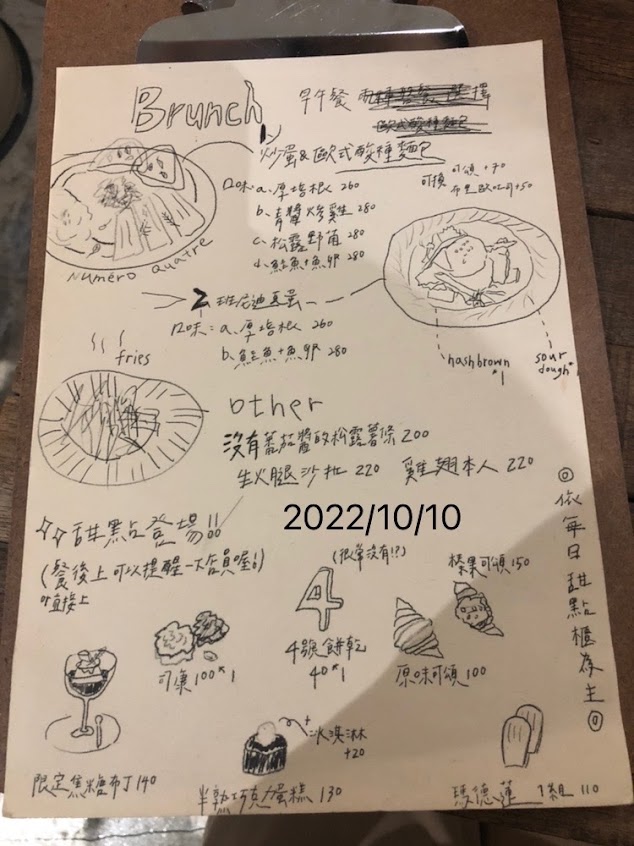 Brunch
早午餐 兩種餐餐 選擇
歐式酸種麵包
炒蛋&歐式酸種麵包
可換 可頌+70
布里歐吐司+50
口味a.厚培根 260
b.青醬烤雞 280
c.松露野菇 280
d.鮭魚+魚卵 280
Numéro Quatre
2 班尼迪克蛋
口味:a.厚培根 260
b.鮭魚+魚卵 280
hashbrown *1
sour dough *1
fries
other
沒有蕃茄醬的松露薯條 200
生火腿沙拉 220 雞翅本人 220
2022/10/10
甜點登場!!
(餐後上可以提醒一下店員喔!)
or直接上
(很常沒有!?)
榛果可頌 150
4
可麗 100*1
4號餅乾
40*1
原味可頌 100
+冰淇淋
+20
限定焦糖布丁 140
半熟巧克力蛋糕 130
瑪德蓮 1組 110
◎依每日甜點櫃為主◎